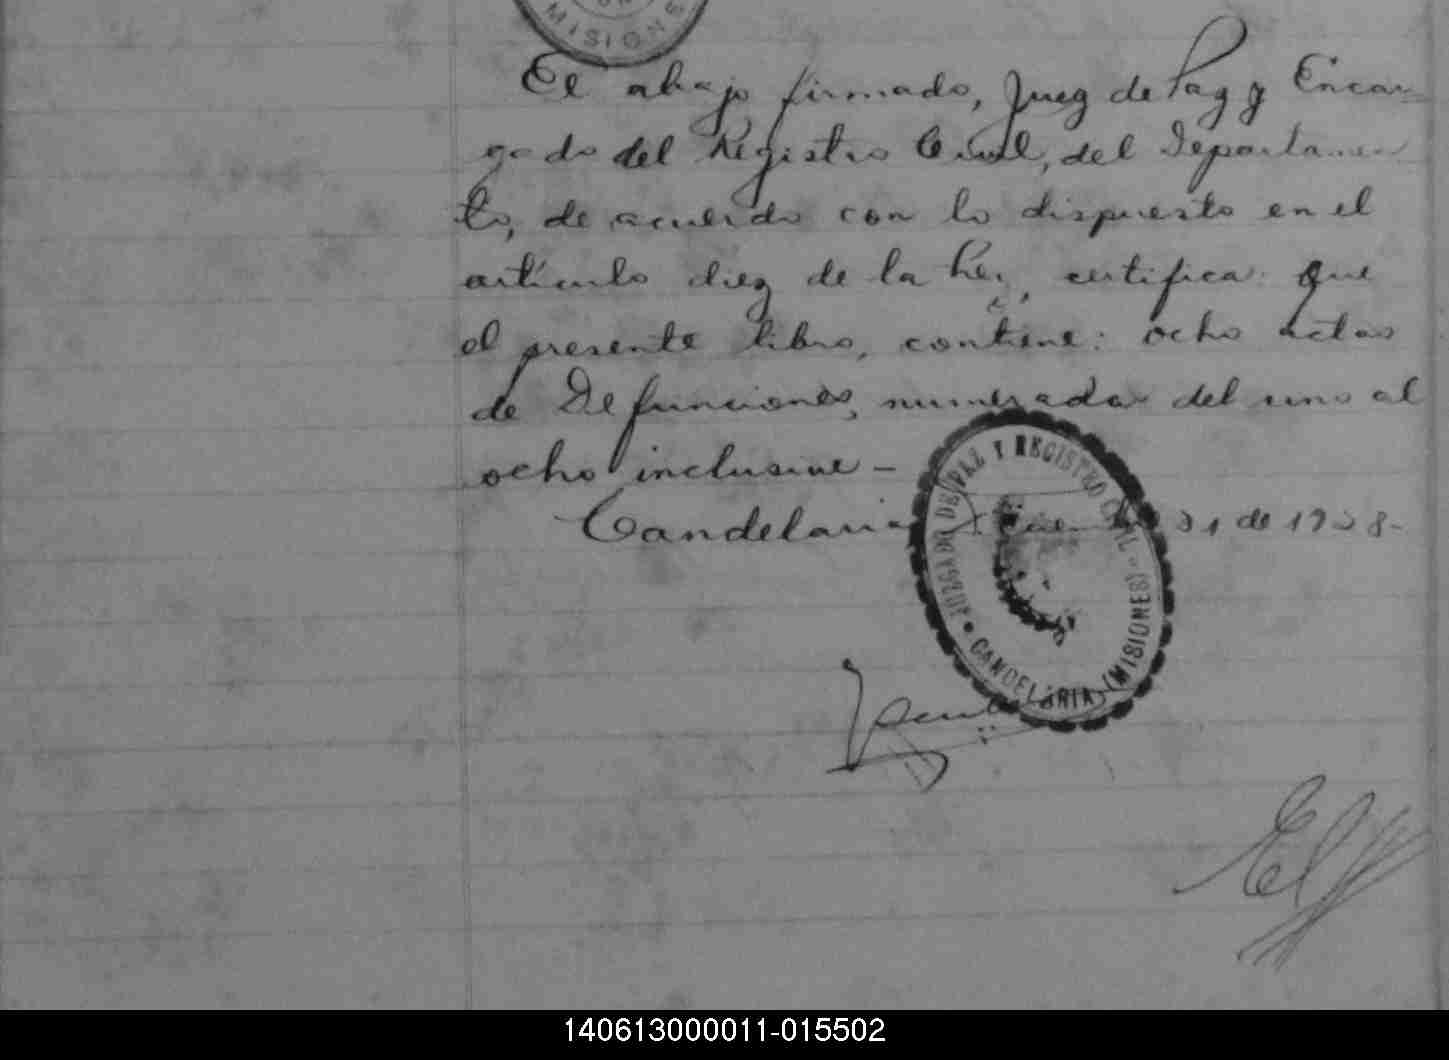 MISIONES
El abajo firmado, Juez de Paz y Encar-
gado del Registro Civil, del Departamen
to, de acuerdo con lo dispuesto en el
artículo diez de la Ley, certifica: que
el presente libro, contiene: ocho actas
de Defunciones, numeradas del uno al
ocho inclusive -
Candelaria 31 de 1928-
JUZGADO DE PAZ Y REGISTRO CIVIL - CANDELARIA (MISIONES)
140613000011-015502